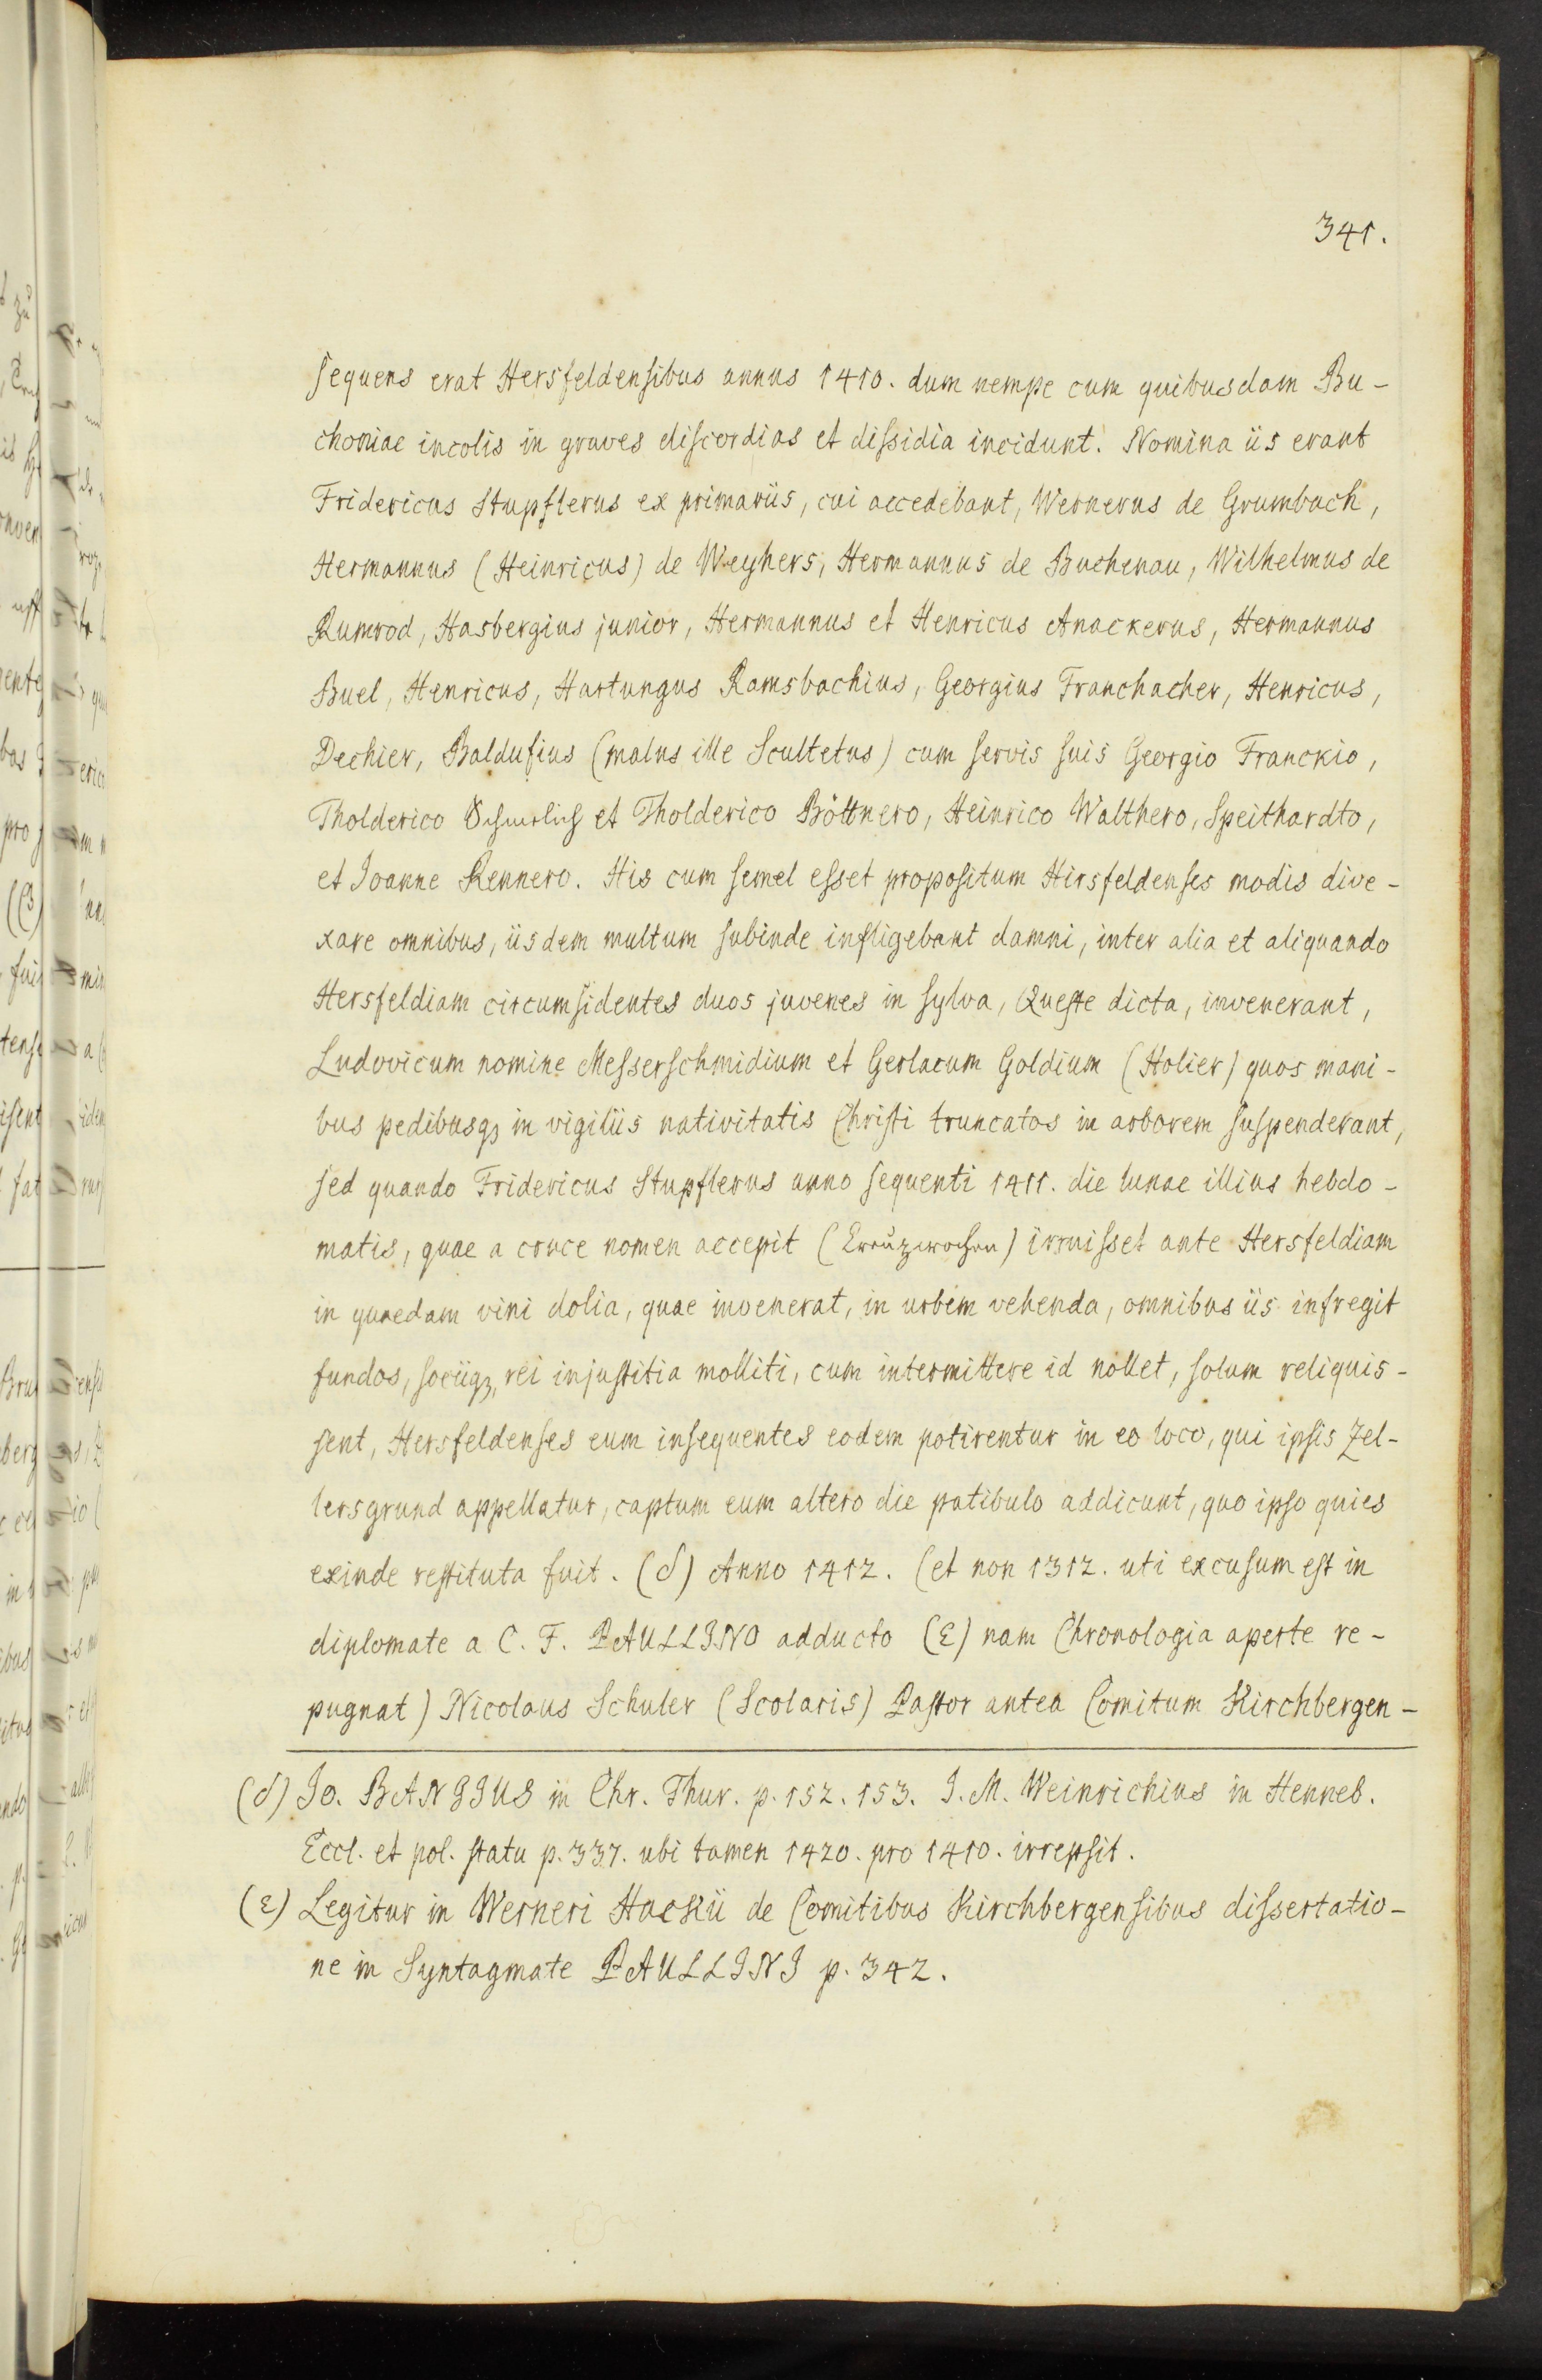 341.
sequens erat Hersfeldensibus annus 1410. dum nempe cum quibusdam Bu-
choniae incolis in graves discordias et dissidia incidunt. Nomina iis erant
Fridericus Stupflerus ex primariis, cui accedebant, Wernerus de Grumbach,
Hermannus (Heinricus) de Weyhers, Hermannus de Buchenau, Wilhelmus de
Rumrod, Hasbergius junior, Hermannus et Henricus Anackerus, Hermannus
Buel, Henricus, Hartungus Ramsbachius, Georgius Franchacher, Henricus,
Dechier, Baldufius (malus ille Scultetus) cum servis suis Georgio Franckio,
Tholderico et Tholderico Böttnero, Heinrico Walthero, Speithardto,
et Joanne Rennero. His cum semel esset propositum Hirsfeldenses modis dive-
xare omnibus, iisdem multum subinde infligebant damni, inter alia et aliquando
Hersfeldiam circumsidentes duos juvenes in sylva, Queste dicta, invenerant,
Ludovicum nomine Messerschmidium et Gerlacum Goldium (Holier) quos mani-
bus pedibusqꝫ in vigiliis nativitatis Christi truncatos in arborem suspenderant,
sed quando Fridericus Stupflerus anno sequenti 1411. die lunae illius hebdo-
matis, quae a cruce nomen accepit (Creuzwochen) irruisset ante Hersfeldiam
in quaedam vini dolia, quae invenerat, in urbem vehenda, omnibus iis infregit
fundos, sociiqꝫ, rei injustitia molliti, cum intermittere id nollet, solum reliquis-
sent, Hersfeldenses eum insequentes eodem potirentur in eo loco, qui ipsis Zel-
lersgrund appellatur, captum eum altero die patibulo addicunt, quo ipso quies
exinde restituta fuit. (δ) Anno 1412. (et non 1312. uti excusum est in
diplomate a C. F. PAULLINO adducto (ε) nam Chronologia aperte re-
pugnat) Nicolaus Schuler (Scolaris) Pastor antea Comitum Kirchbergen-
(δ) Jo. BANGIUS in Chr. Thur. p. 152. 153. J. M. Weinrichius in Henneb.
Eccl. et pol. statu p. 337. ubi tamen 1420. pro 1410. irrepsit.
(ε) Legitur in Werneri Hackii de Comitibus Kirchbergensibus dissertatio-
ne in Syntagmate PAULLINI p. 342.